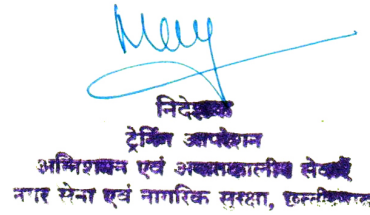 निदेशक
ट्रेनिंग आपरेशन
अग्निशमन एवं आपातकालीन सेवाएं
नगर सेना एवं नागरिक सुरक्षा, छत्तीसगढ़